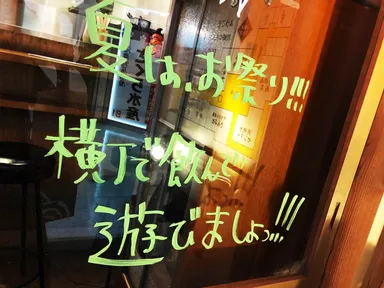 夏は、お祭り!!!
横丁で飲んで
遊びましょっ!!!